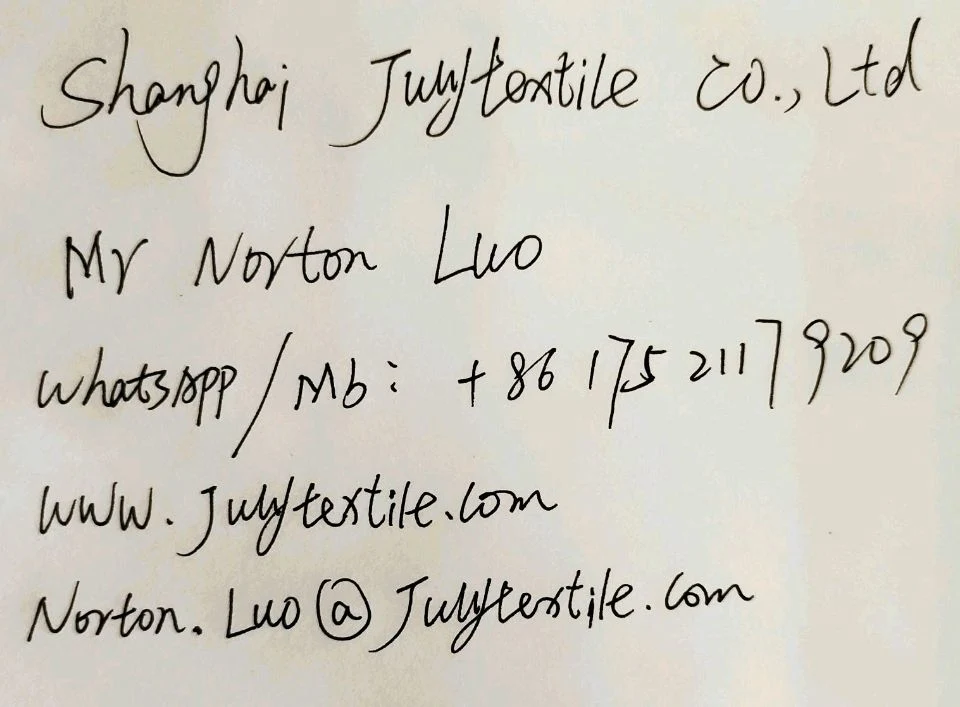 Shanghai Julytextile Co., Ltd
Mr Norton Luo
WhatsApp/Mb: +86 175 2117 9209
www.Julytextile.com
Norton.Luo@Julytextile.com